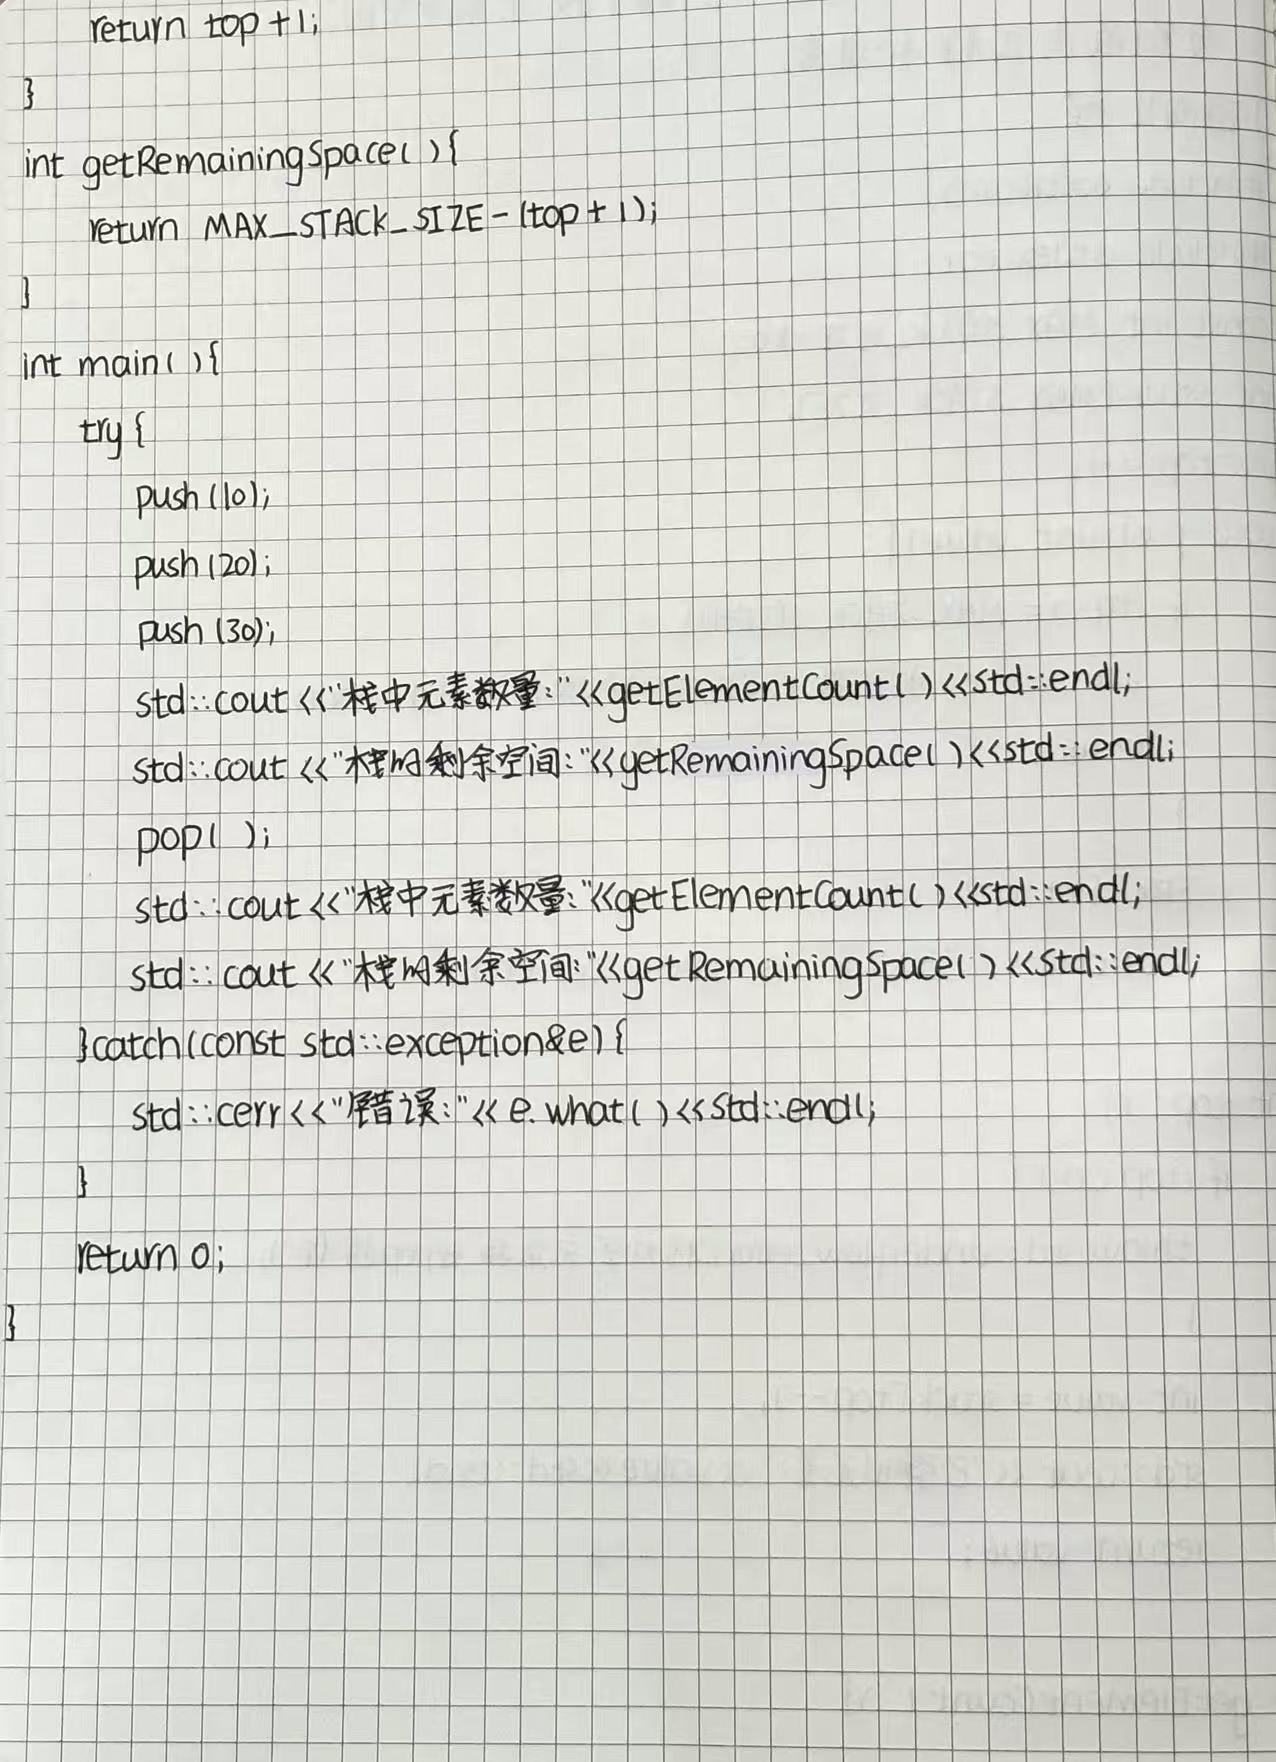 return top+1;
}
int getRemainingSpace( ){
return MAX_STACK_SIZE-(top+1);
}
int main( ){
try{
push(10);
push(20);
push(30);
std::cout<<"栈中元素数量:"<<getElementCount( )<<std::endl;
std::cout<<"栈的剩余空间:"<<getRemainingSpace( )<<std::endl;
pop( );
std::cout<<"栈中元素数量:"<<getElementCount( )<<std::endl;
std::cout<<"栈的剩余空间:"<<getRemainingSpace( )<<std::endl;
}catch(const std::exception&e){
std::cerr<<"错误:"<<e.what( )<<std::endl;
}
return 0;
}